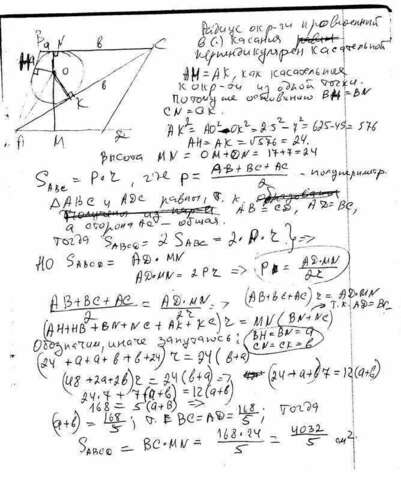 Радиус окр-ти проведённый
в (.) касания
перпендикулярен касательной
AH = AK, как касательная
к окр-ти из одной точки.
Потому же основанию BH = BN
CN = CK.
AK² = AO² - OK² = 25² - 7² = 625 - 49 = 576
AH = AK = √576 = 24.
Высота MN = OM + ON = 17 + 7 = 24
S ABC = P·r, где P = (AB + BC + AC)/2 - полупериметр.
ΔABC и ADC равны, т.к.
AB = CD, AD = BC,
а сторона AC - общая.
Тогда S ABCD = 2 S ABC = 2·P·r } =>
Но S ABCD = AD·MN
AD·MN = 2Pr => P = AD·MN/2r
(AB + BC + AC)/2 = AD·MN/2r => (AB + BC + AC) r = AD·MN
т.к. AD = BC
(AH + HB + BN + NC + AK + KC) r = MN (BN + NC)
Обозначим, иначе запутаюсь: BH = BN = a
CN = CK = b
(24 + a + a + b + b + 24) r = 24 (b + a)
(48 + 2a + 2b) r = 24 (b + a) => (24 + a + b) 7 = 12 (a + b)
24·7 + 7(a + b) = 12(a + b)
168 = 5 (a + b) =>
(a + b) = 168/5; т.е. BC = AD = 168/5; тогда
S ABCD = BC·MN = 168·24/5 = 4032/5 см².
B a N b C
H
O
b
K
A M